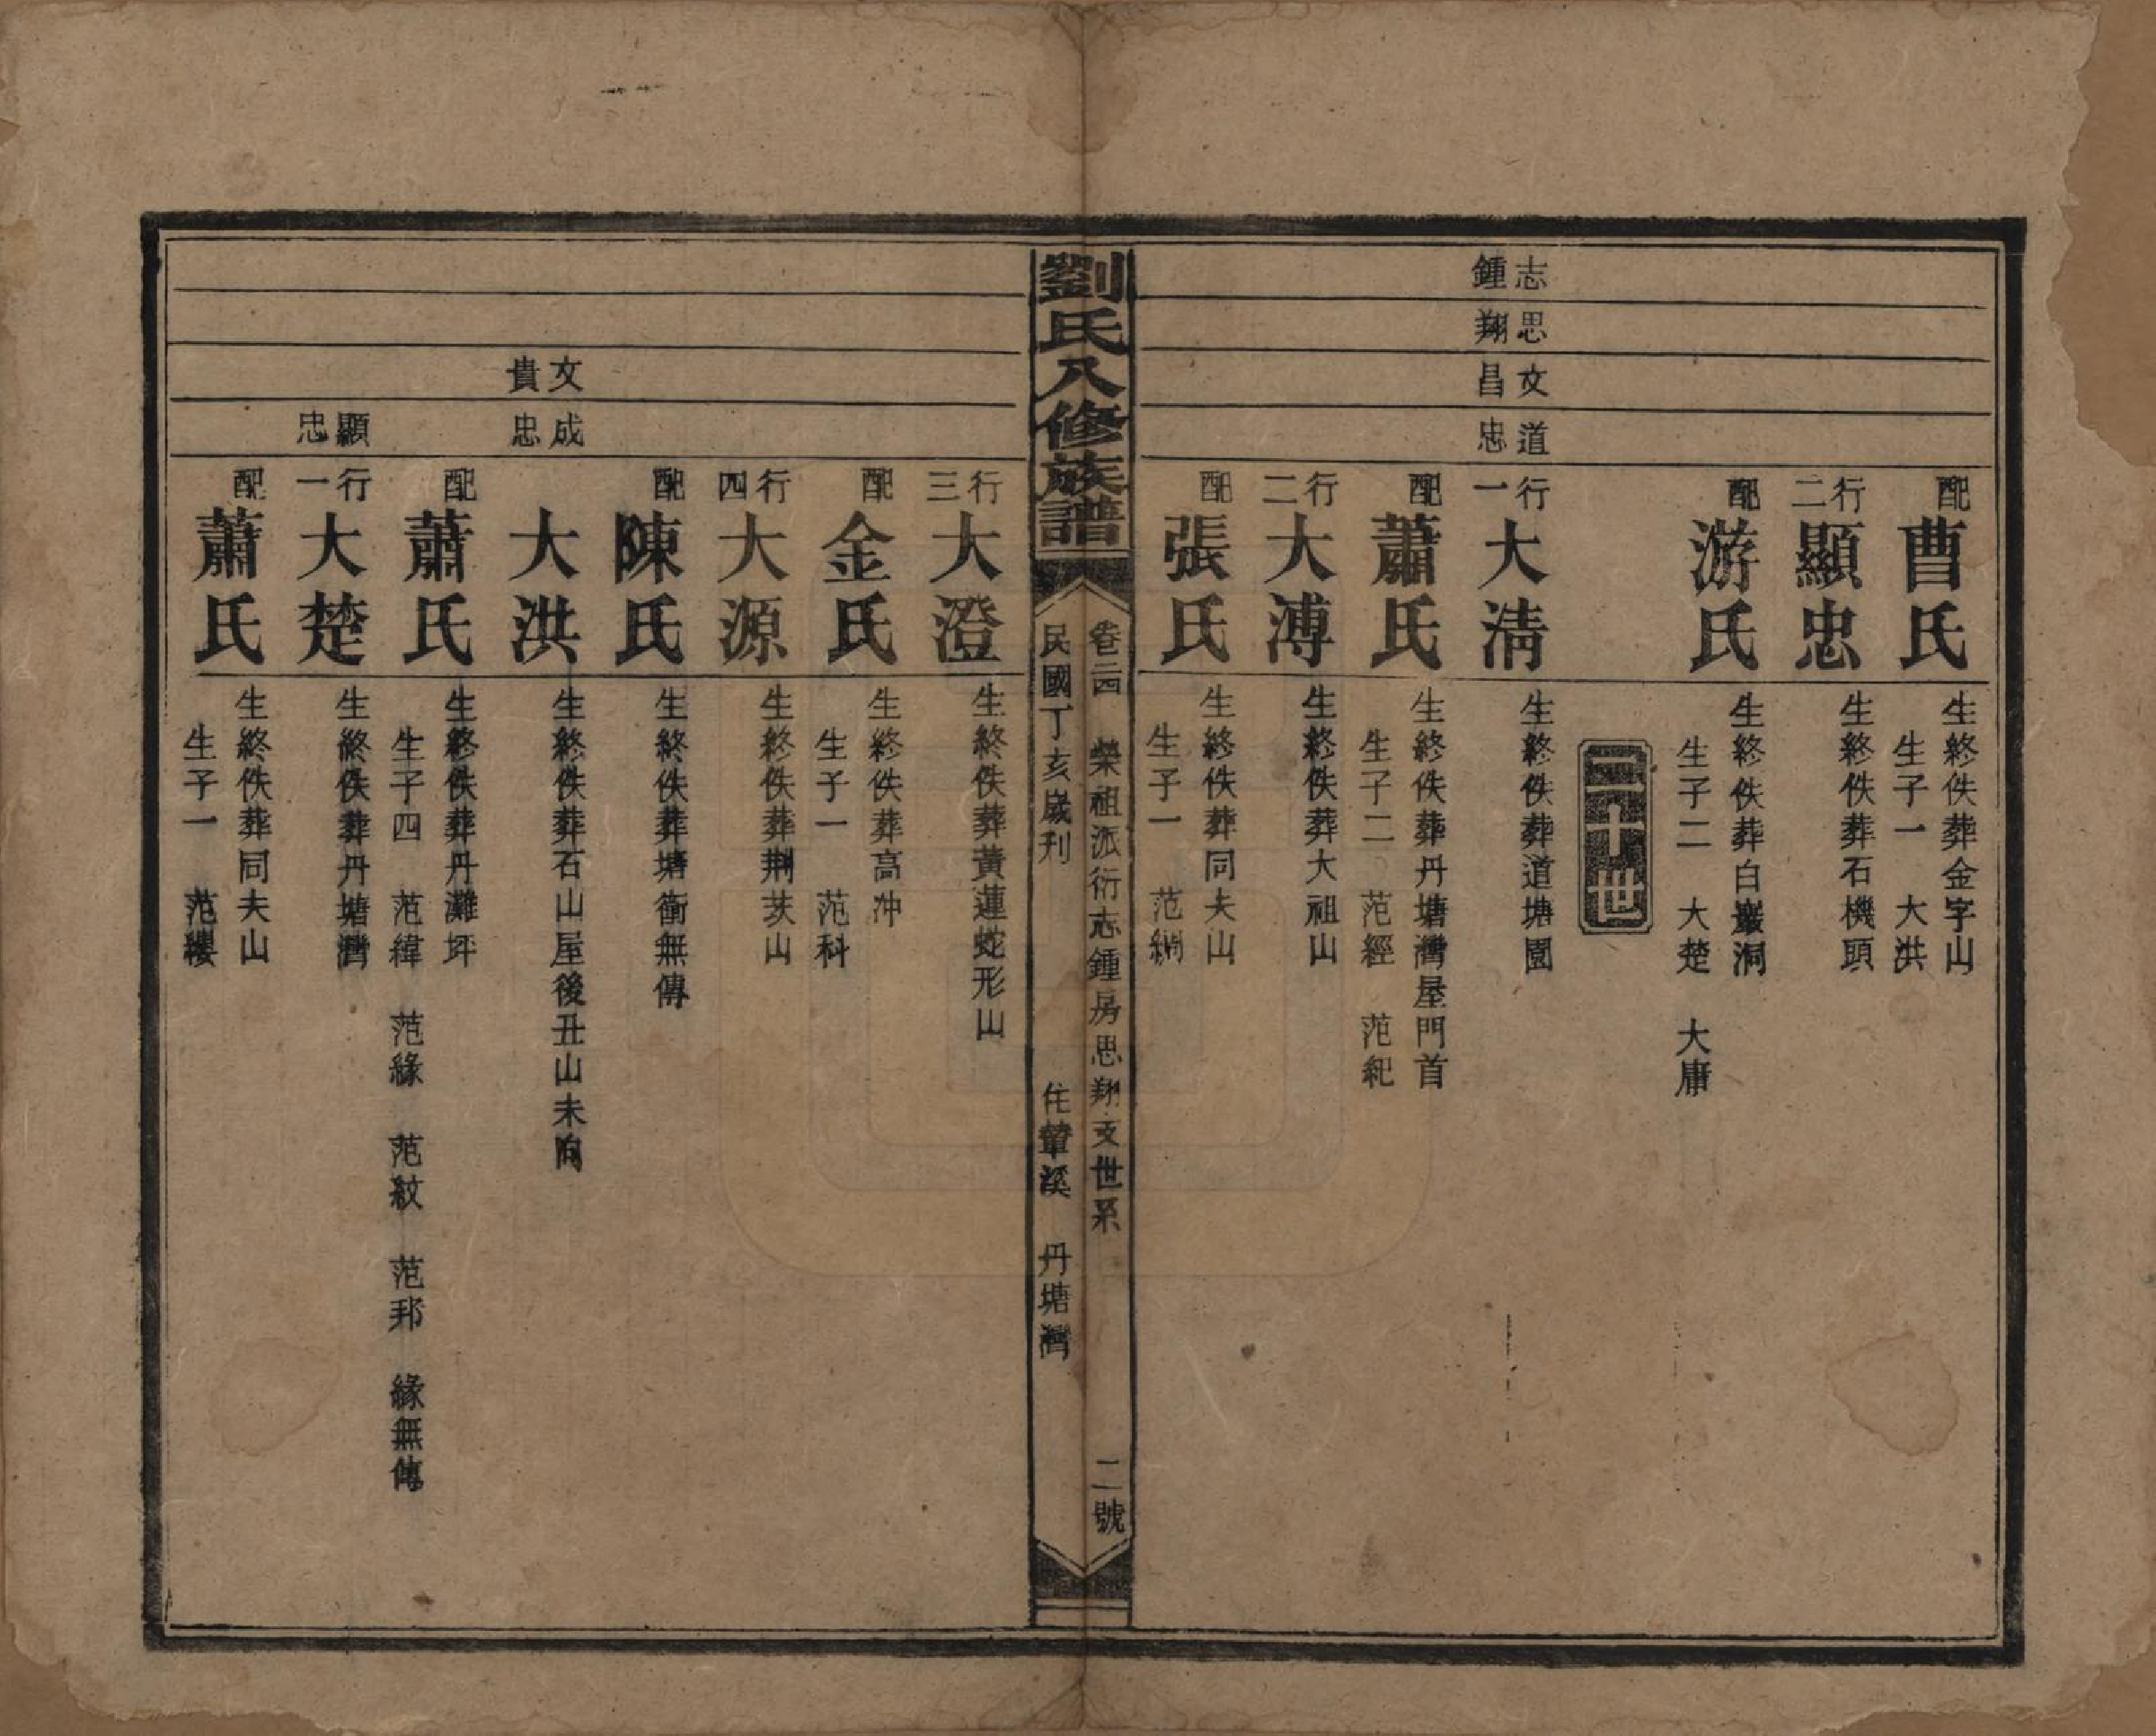 配曹氏
生終佚葬金字山
生子一 大洪
行二顯忠
生終佚葬石機頭
配游氏
生終佚葬白巖洞
生子二 大楚 大庸
二十世
志鍾
思翔
文昌
道忠
行一大清
生終佚葬道塘園
配蕭氏
生終佚葬丹塘灣屋門首
生子二 范經 范紀
行二大溥
生終佚葬大祖山
配張氏
生終佚葬同夫山
生子一 范綱
劉氏八修族譜
卷二四 榮祖派衍志鍾房思翔文世系 二號
民國丁亥歲刊 住輦溪 丹塘灣
行三大澄
生終佚葬黃蓮蛇形山
配金氏
生終佚葬高冲
生子一 范科
行四大源
生終佚葬荆茨山
配陳氏
生終佚葬塘衝無傳
文貴
成忠
大洪
生終佚葬石山屋後丑山未向
配蕭氏
生終佚葬丹灘坪
生子四 范緯 范緣 范紋 范邦 緣無傳
顯忠
行一大楚
生終佚葬丹塘灣
配蕭氏
生終佚葬同夫山
生子一 范縷